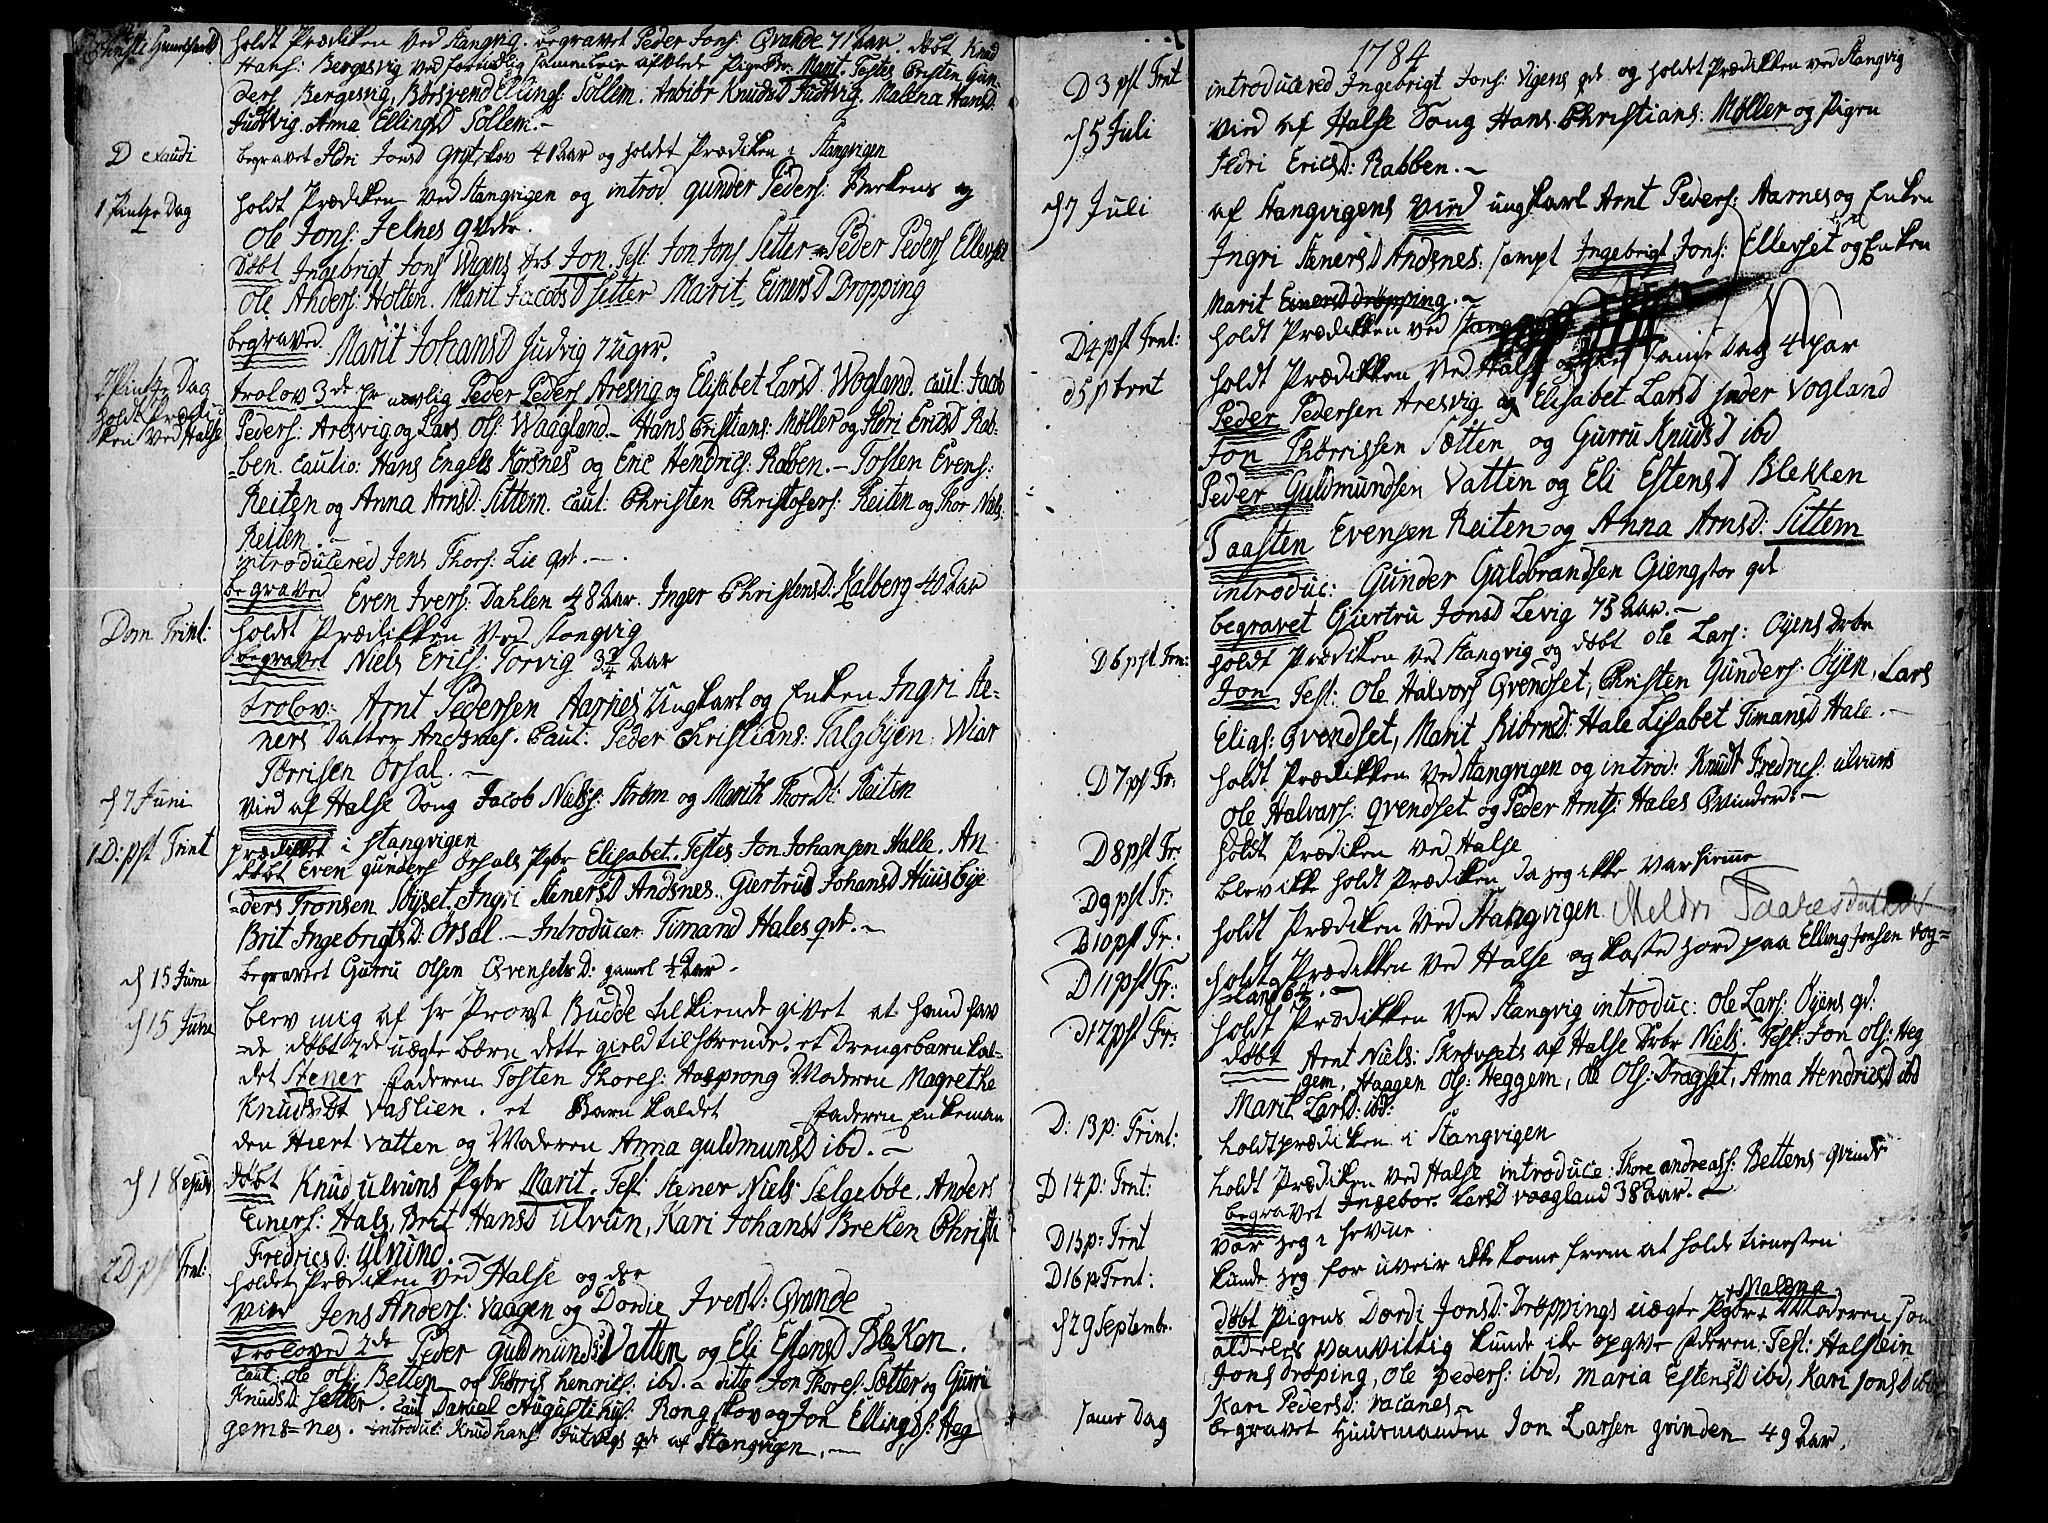 Christi Himelfardt holdt Prædiken Ved Stangvig. begravet Peder Jons: Qvande 71 Aar. døbt Knud
Hans: Bergesvig Ved formelig samenleie aflede Pige Br. Marit. Testes Cristen Gun
ders Bergesvig, Børsvend Ellings Sollem. Anbiør Knudsd Judtvig. Malena Hansd
Judtvig. Anna Ellingsd Sollem.-
D exaudi begravet Ildri Jonsd Grøtskov 41 Aar og holdet Prædiken i Stangvigen
1 Pintze Dag holdt Prædiken Ved Stangvigen og introd gunder Peders: Brekens og
Ole Jons: Jelnes qvdr.
Døbt Ingebrigt Jons Wigens drb Jon. Test Jon Jons Setter Peder Peders Ellerset
Ole Anders: Holten. Marit Jacobsd Setter Marit, Einersd Dropping
begraved Marit Johansd Judvig 7 uger.
2 Pintze Dag trolov 3de pr nemlig Peder Peders Aresvig og Elisabet Larsd. Wogland. Caut: Jacob
holdt Prædiken Ved Halse Peders: Aresvig og Lars Ols: Waagland - Hans Cristians: Møller og Ildri Ericsd Rab-
ben. Cautio: Hans Engels Korsnes og Eric Hendrics: Raben. - Tosten Evens:
Reiten og Anna Arnsd: Sittem. Caut: Christen Christofers: Reiten og Thor Niels.
Reiten.-
introducered Jens Thors: Lie qvr.-
begraved Even Ivers: Dahlen 48 Aar. Inger Christensd: Kalberg 40 Aar
Dom Trint: holdet Prædikken Ved Stangvig
begravet Niels Erics: Torvig 3¼ Aar
trolov: Arnt Pedersen Aarnes Ungkarl og Enken Ingri Ste-
ners Datter Andsnes. Caut: Peder Christians: Talgöyen. Wiar
Törrisen Orsal.-
d 7 Juni Vied af Halse Song Jacob Niels: Strøm og Marith Thor D: Reiten
1 D: pst Trint prædikket i Stangvigen
døbt Even gunders Orsals Pgbr Elisabet. Testes Jon Johansen Halle. An
ders Tronsen Röyset. Ingri Stenersd Andsnes. Giertrud Johansd Huusbye
Brit Ingebrigtsd: Orsal.- Introducer Timand Hales qdr.-
d 15 June begravet Gurru Olsen Qvensets D: gamel ½ Aar.
d 15 June blev mig af hr Provst Budde tilkiende givet at hand hav
de døbt 2de uægte børn dette gield tilhørende. et Drengebarn kal-
det Stener Faderen Tosten Thores: Aasprong Moderen Magrethe
Knudsdt Vaslien. et Barn kaldet Faderen Enkeman
den Hiert Vatten og Moderen Anna guldmunsd ibd.-
d 18 ejusd døbt Knud ulvuns Pgbr Marit. Test Stener Niels: Selgebøe. Anders
Einers: Hals, Brit Hansd ulvun, Kari Johansd Breken Christi
Fredricsd: ulvund.
2D pst Trnt: holdet Prædiken Ved Halse og der
Vied Jens Anders: Vaagen og Dordie Iversd: Qvande
troloved 2de Peder guldmunds Vatten og Eli Estensd Blekken.
Caut: ole ols: Betten og Thørris henrics: ibd. - ditto Jon Thores: Sætter og Gurri
Knudsd Setter. Caut Daniel Augustinus: Rongskov og Jon Ellings: Heg
gems-nes. - introduc: Knud hans Jutvigs qdr af Stangvigen.-
1784
D 3 pst Trnt introducered Ingebrigt Jons: Vigens qdr og holdet Prædikken ved Stangvig
d 5 Juli Vied af Halse Song Hans Christians: Møller og Pigen
Ildri Ericsd: Rabben.-
d 7 Juli af Stangvigens Vied ungkarl Arnt Peders: Aarnes og Enken
Ingri Stenersd Andsnes: sampt Ingebrigt Jons: Ellerset og Enken
Marit Einersd drøpping.-
D 4 pst Trnt: holdt Prædikken ved Stang
d 5 p trnt holdt Prædikken Ved Halse samme Dag 4 par
Peder Pedersen Aresvig og Elisabet Larsd Vogland
Jon Thørrissen Sætten og Gurru Knudsd ibd
Peder Guldmundsen Vatten og Eli Estensd Blekken
Taasten Evensen Reiten og Anna Arnsd: Sittem
introduc: Gunder Guldbrandsen Giengstor qd
begravet Giertru Jonsd Levig 75 Aar.-
D 6 pst Trn: holdt Prædikken Ved Stangvig og døbt ole Lars: Oyens drbr
Jon Test: Ole Halvors Qvendset, Christen Gunders: Öyen, Lars
Elias: Qvendset, Marit Biörnd: Hale Lisabet Timansd Hale.-
D 7 pst Tr: holdt Prædikken Ved Stangvigen og introd: Knudt Fredrics: ulvuns
Ole Halvars: qvendset og Peder Arnts: Hales Qvinder:-
D 8 pst Tr: holdt Prædiken Ved Halse
D 9 pst Tr: blev ikke holdt Prædiken da jeg ikke var hieme
D 10 pst Tr.: holdt Prædiken Ved Stangvigen. Meldri Taaresdatter
D 11 pst Tr: holdt Prædikken Ved Halse og kaste jord paa Elling Jonsen Vog=
land 6½.-
d 12 pst Tr: holdt Prædikken Ved Stangvig introduc: Ole Lars: Öyens qd:
døbt Arnt Niels: Skrøvsets af Halse Drbr Niels. Test: Jon Ols: Heg
gem, Haagen Ols: Heggem, Ole Ols: Dragset, Anna Hendricsd ibd
Marit Larsd: ibd:
D: 13 p: Trint: holdt prædiken i Stangvigen
D 14 p: Trnt: holdt Prædiken Ved Halse introduce: Thore andreass: Bettens qvinde
begravet Ingebor Larsd Vaagland 38 Aar.-
D 15 p: Trnt var jeg i hevne
D 16 p Trnt: kunde jeg for uveir ikke kome frem at holde tienesten
d 29 Septembr. døbt Pigens Dordi Jonsd: Dröppings uægte Pgbr + Malena Moderen som
aldeles Vanvittig kunde ike opgive Federen: Test: Halstein
Jons dröping, Ole Peders: ibd, Maria Estensd ibd, Kari Jonsd ibd
Kari Pedersd: Vacanes-
same Dag begravet Huusmanden Jon Larsen grinden 49 Aar.